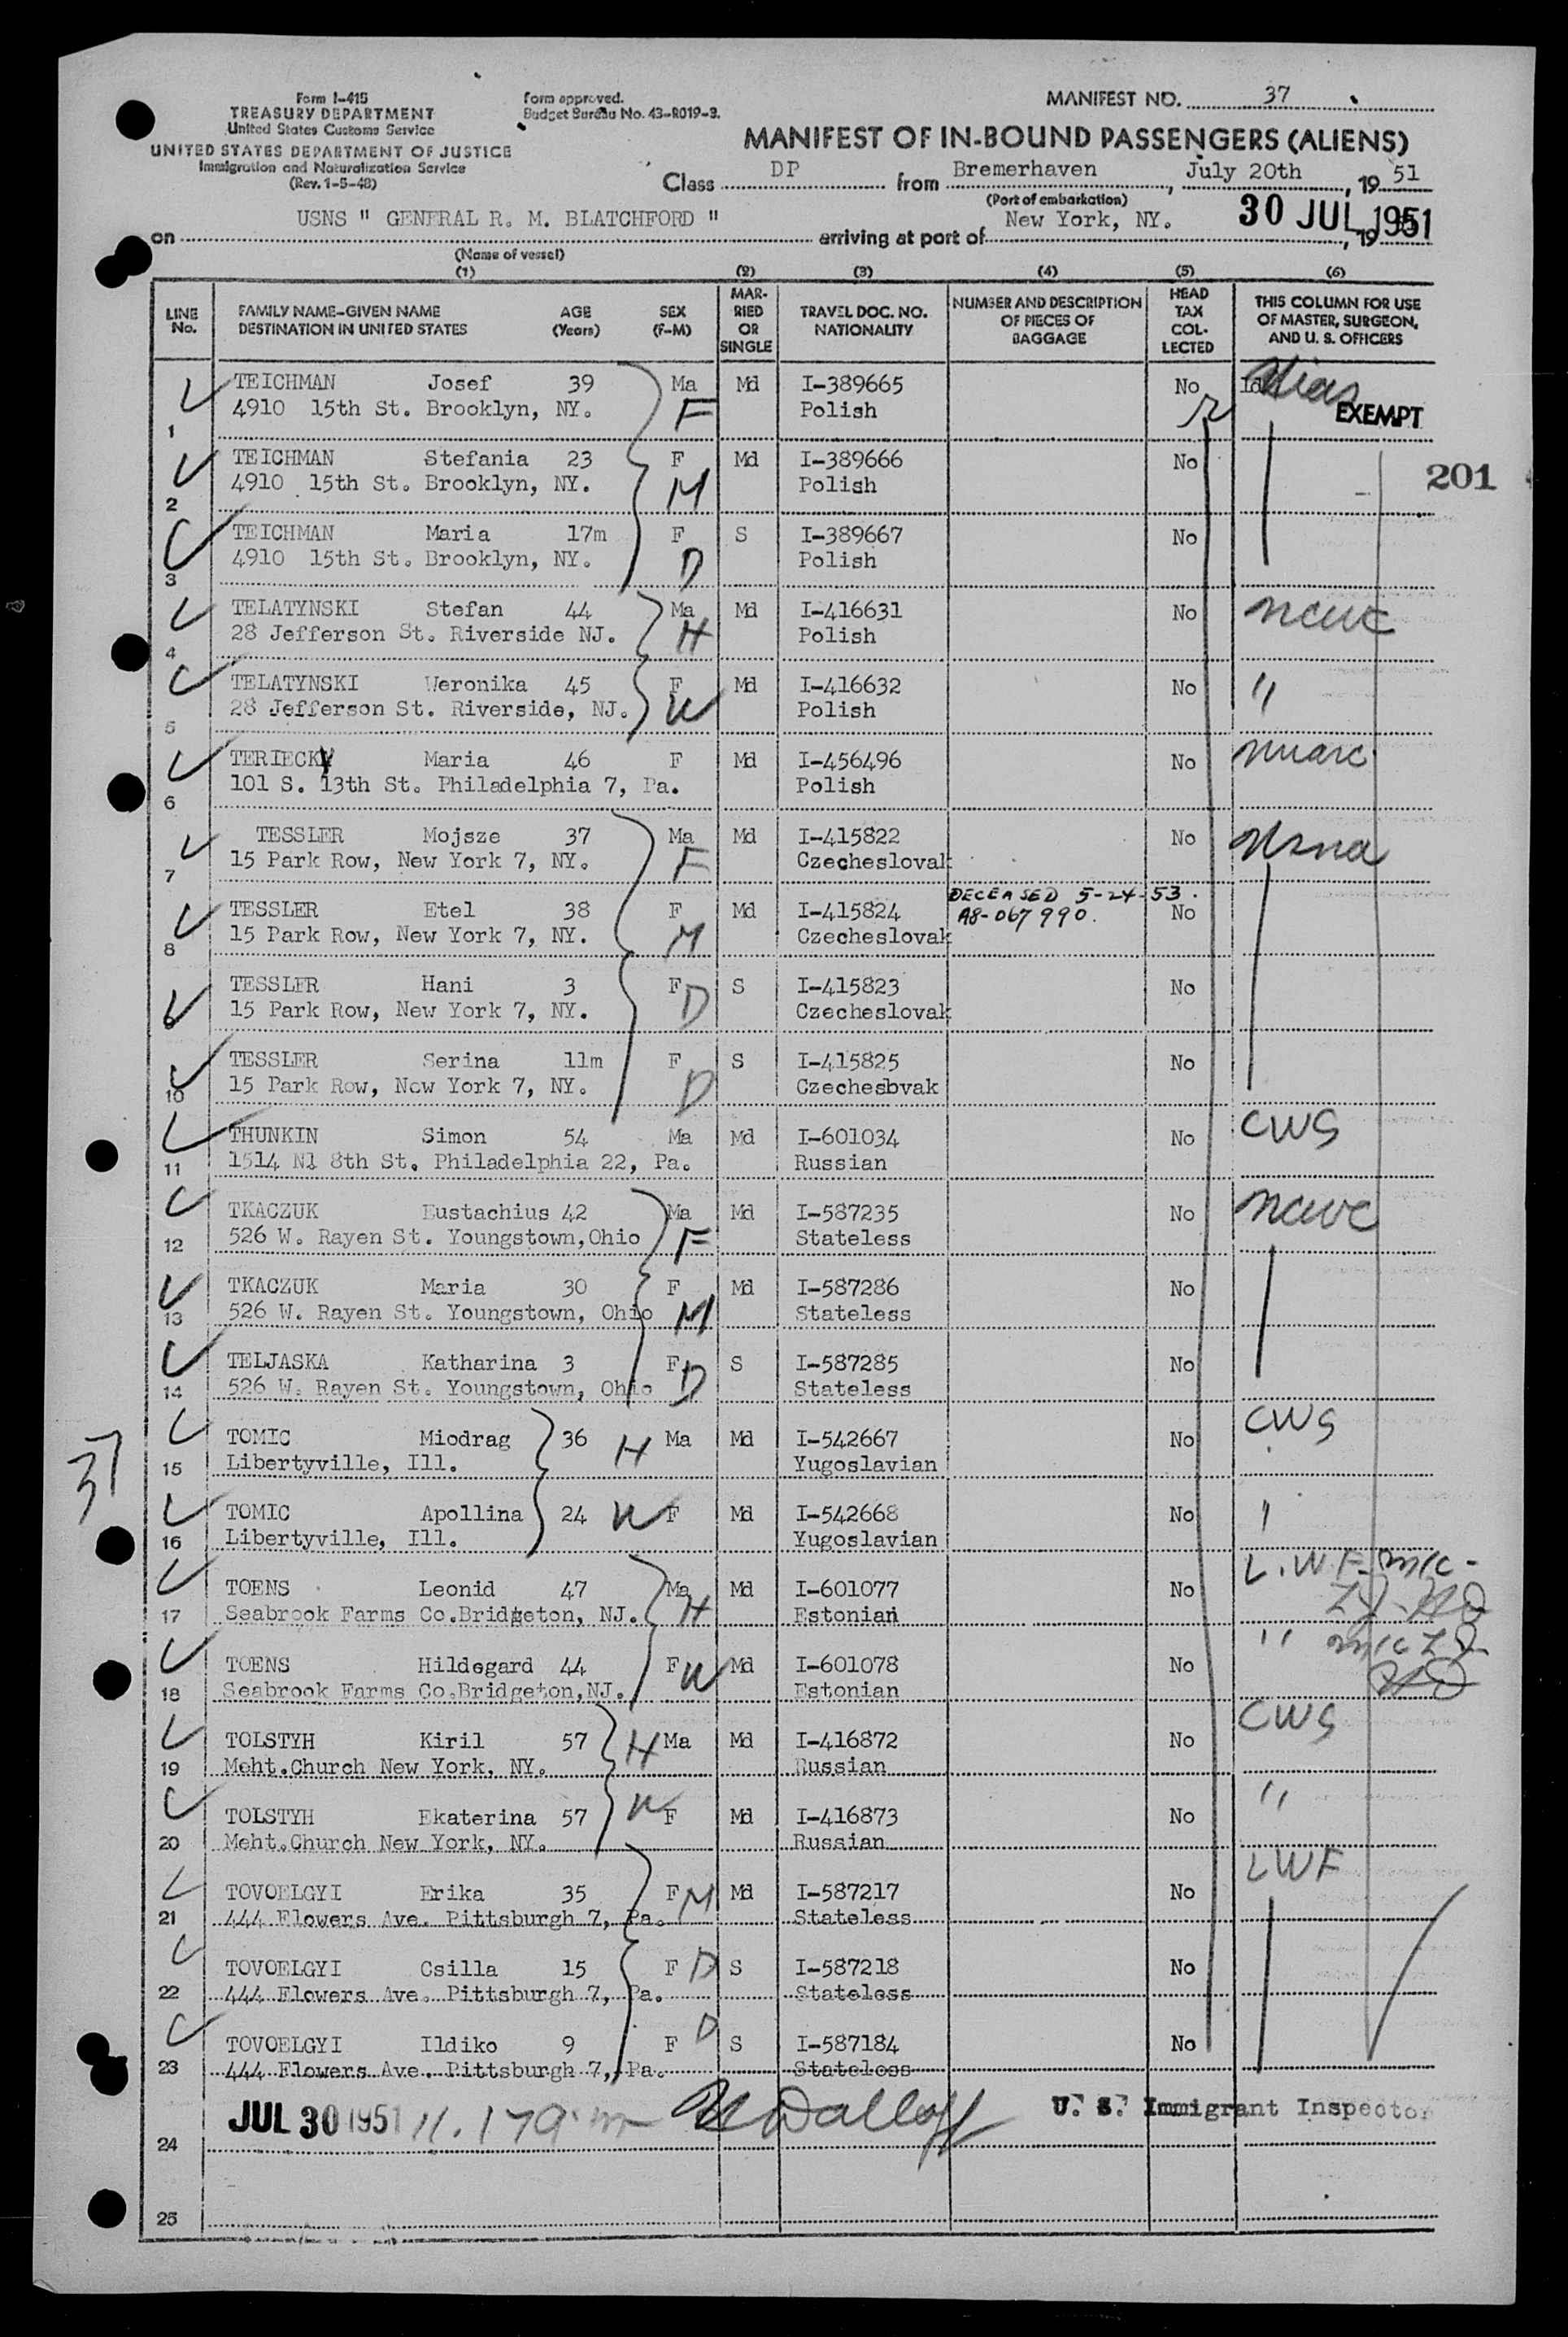 Form I-415
TREASURY DEPARTMENT
United States Customs Service
UNITED STATES DEPARTMENT OF JUSTICE
Immigration and Naturalization Service
(Rev. 1-5-48)
Form approved.
Budget Bureau No. 43-R019-3.
MANIFEST NO. 37
MANIFEST OF IN-BOUND PASSENGERS (ALIENS)
Class DP from Bremerhaven, July 20th, 19 51
(Port of embarkation)
on USNS " GENERAL R. M. BLATCHFORD " arriving at port of New York, NY. 30 JUL 1951, 19
(Name of vessel)
(1) (2) (3) (4) (5) (6)
LINE No.
FAMILY NAME-GIVEN NAME AGE SEX
DESTINATION IN UNITED STATES (Years) (F-M)
MARRIED OR SINGLE
TRAVEL DOC. NO. NATIONALITY
NUMBER AND DESCRIPTION OF PIECES OF BAGGAGE
HEAD TAX COLLECTED
THIS COLUMN FOR USE OF MASTER, SURGEON, AND U. S. OFFICERS
TEICHMAN Josef 39 Ma Md I-389665 No
1 4910 15th St. Brooklyn, NY. F Polish EXEMPT
TEICHMAN Stefania 23 F Md I-389666 No
2 4910 15th St. Brooklyn, NY. M Polish
201
TEICHMAN Maria 17m F S I-389667 No
3 4910 15th St. Brooklyn, NY. D Polish
TELATYNSKI Stefan 44 Ma Md I-416631 No NCWC
4 28 Jefferson St. Riverside NJ. H Polish
TELATYNSKI Weronika 45 F Md I-416632 No "
5 28 Jefferson St. Riverside, NJ. W Polish
TERIECKY Maria 46 F Md I-456496 No
6 101 S. 13th St. Philadelphia 7, Pa. Polish
TESSLER Mojsze 37 Ma Md I-415822 No Usna
7 15 Park Row, New York 7, NY. F Czecheslovak
TESSLER Etel 38 F Md I-415824 DECEASED 5-24-53. No
8 15 Park Row, New York 7, NY. M Czecheslovak A8-067990.
TESSLER Hani 3 F S I-415823 No
9 15 Park Row, New York 7, NY. D Czecheslovak
TESSLER Serina 11m F S I-415825 No
10 15 Park Row, New York 7, NY. D Czechesbvak
THUNKIN Simon 54 Ma Md I-601034 No CWS
11 1514 N1 8th St. Philadelphia 22, Pa. Russian
TKACZUK Eustachius 42 Ma Md I-587235 No NCWC
12 526 W. Rayen St. Youngstown,Ohio F Stateless
TKACZUK Maria 30 F Md I-587286 No
13 526 W. Rayen St. Youngstown, Ohio M Stateless
TELJASKA Katharina 3 F S I-587285 No
14 526 W. Rayen St. Youngstown, Ohio D Stateless
37
TOMIC Miodrag 36 H Ma Md I-542667 No CWS
15 Libertyville, Ill. Yugoslavian
TOMIC Apollina 24 W F Md I-542668 No "
16 Libertyville, Ill. Yugoslavian
TOENS Leonid 47 Ma Md I-601077 No L.W.F.
17 Seabrook Farms Co.Bridgeton, NJ. H Estonian
TOENS Hildegard 44 F W Md I-601078 No "
18 Seabrook Farms Co.Bridgeton,NJ. Estonian
TOLSTYH Kiril 57 H Ma Md I-416872 No CWS
19 Meht.Church New York, NY. Russian
TOLSTYH Ekaterina 57 W F Md I-416873 No "
20 Meht.Church New York, NY. Russian
TOVOELGYI Erika 35 F M Md I-587217 No LWF
21 444 Flowers Ave. Pittsburgh 7, Pa. Stateless
TOVOELGYI Csilla 15 F D S I-587218 No
22 444 Flowers Ave. Pittsburgh 7, Pa. Stateless
TOVOELGYI Ildiko 9 F D S I-587184 No
23 444 Flowers Ave. Pittsburgh 7, Pa. Stateless
JUL 30 1951 U. S. Immigrant Inspector
24
25